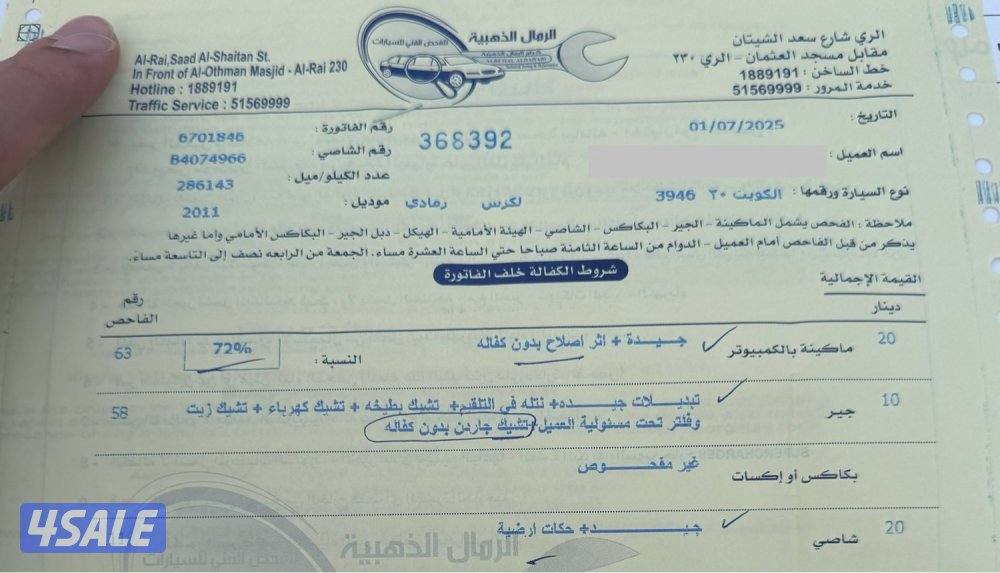 الرمال الذهبية
للفحص الفني للسيارات
كراج الرمال الذهبية
Al-Rai,Saad Al-Shaitan St.
In Front of Al-Othman Masjid - Al-Rai 230
Hotline : 1889191
Traffic Service : 51569999
الري شارع سعد الشيتان
مقابل مسجد العثمان - الري ٢٣٠
خط الساخن : 1889191
خدمة المرور : 51569999
التاريخ : 01/07/2025
368392
رقم الفاتورة : 6701846
اسم العميل :
رقم الشاصي : B4074966
عدد الكيلو/ميل : 286143
نوع السيارة ورقمها : الكويت ٢٠ 3946 لكزس رمادي
موديل : 2011
ملاحظة : الفحص يشمل الماكينة - الجير - البكاكس - الشاصي - الهيئة الأمامية - الهيكل - دبل الجير - البكاكس الأمامي وأما غيرها
يذكر من قبل الفاحص أمام العميل - الدوام من الساعة الثامنة صباحا حتي الساعة العشرة مساء. الجمعة من الرابعه نصف إلى التاسعة مساء.
شروط الكفالة خلف الفاتورة
القيمة الإجمالية
دينار
رقم الفاحص
20 ماكينة بالكمبيوتر جيـدة + اثر اصلاح بدون كفاله النسبة : 72% 63
10 جير تبديـلات جيـده+ نتله في التلقيم+ تشيك بطيخه + تشيك كهرباء + تشيك زيت 58
وفلتر تحت مسئولية العميل+تشيك جاردن بدون كفاله
بكاكس أو إكسات غير مفحـوص
20 شاصي جيـد+ حكات ارضية
الرمال الذهبية
للفحص الفني للسيارات
4SALE